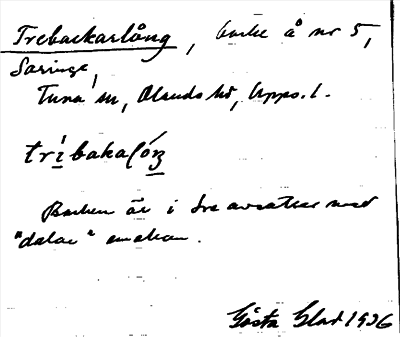 Trebackarlång, backe å nr 5,
Søringe,
Tuna sn, Olands hd, Upps. l.
tríbakalóŋ
Backen är i tre avsatser med
"dalar" emellan.
Gösta Glad 1936